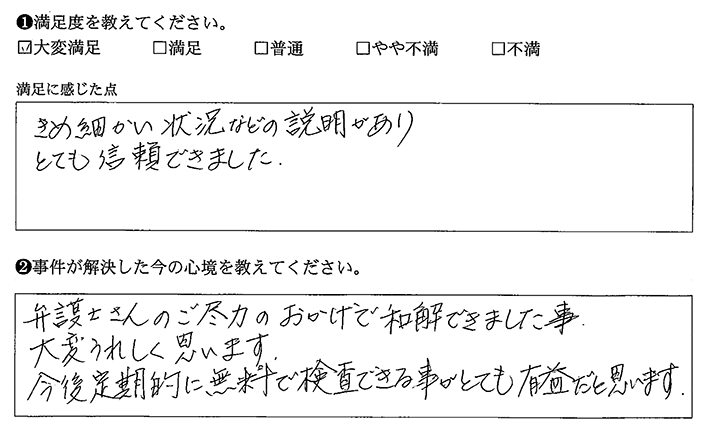 ❶満足度を教えてください。
☑大変満足 □満足 □普通 □やや不満 □不満
満足に感じた点
きめ細かい状況などの説明があり
とても信頼できました.
❷事件が解決した今の心境を教えてください。
弁護士さんのご尽力のおかげで和解できました事.
大変うれしく思います.
今後定期的に無料で検査できる事がとても有益だと思います.